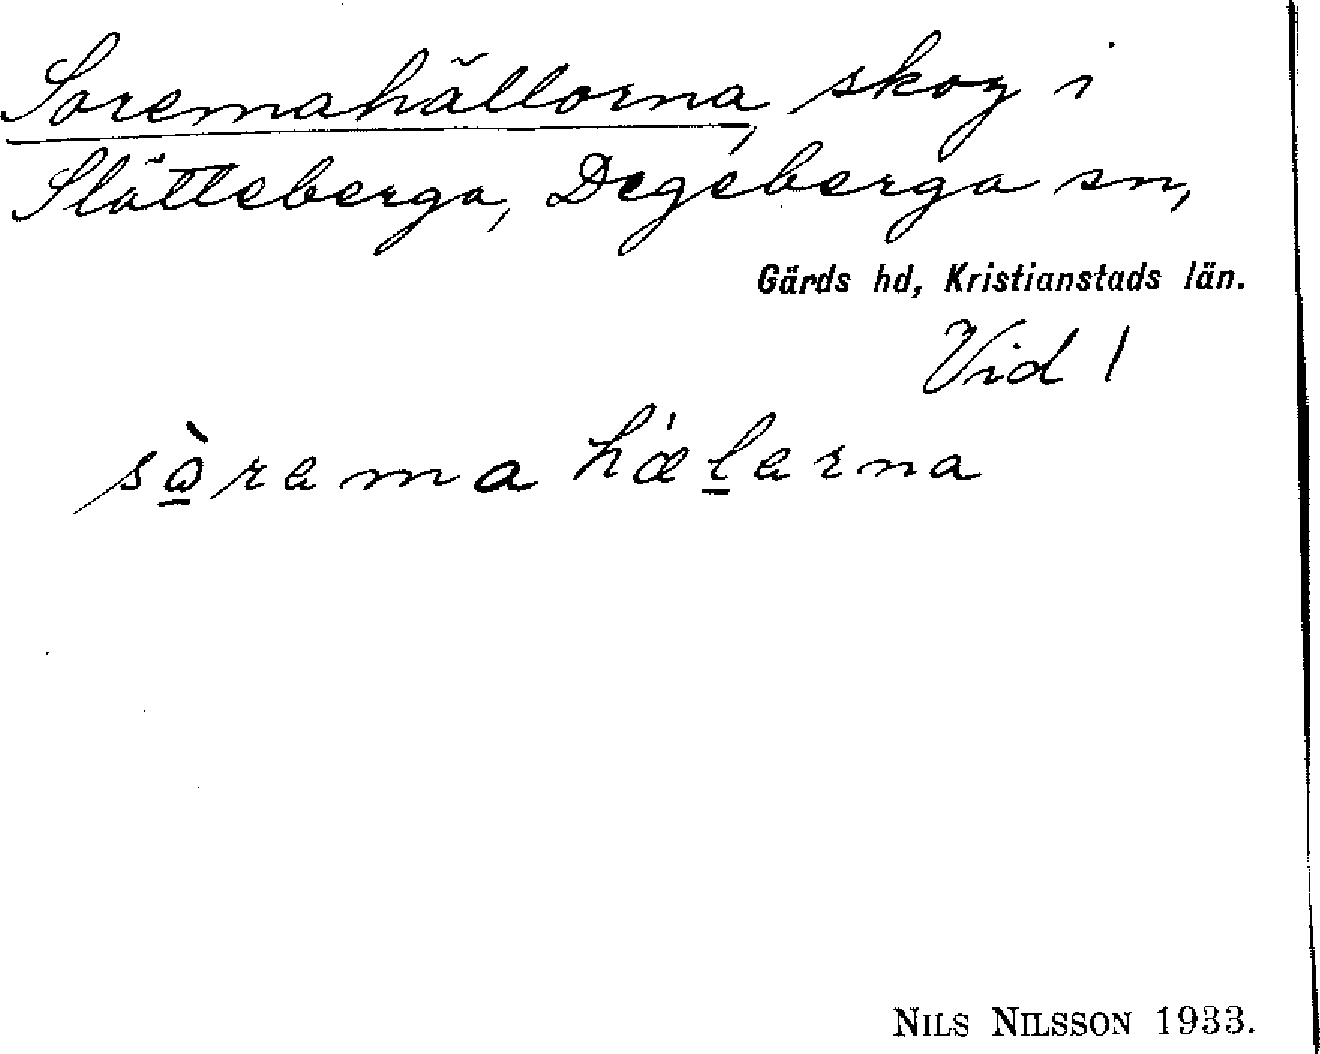 Soremahällorna, skog i
Slätteberga, Degeberga sn,
Gärds hd, Kristianstads län.
Vid 1
sàrema hælarna
NILS NILSSON 1933.